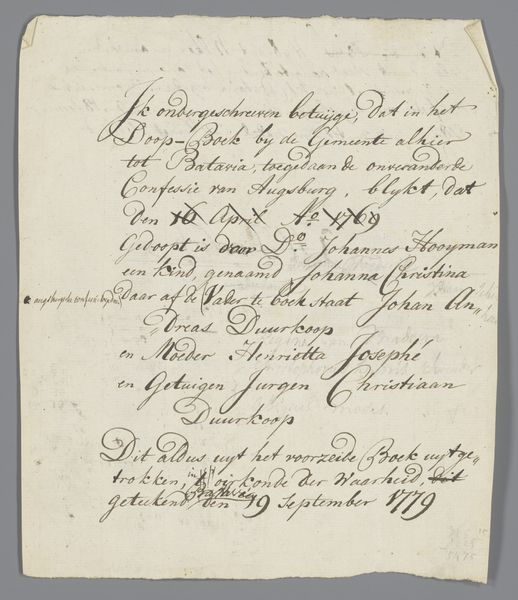 Ik ondergeschreeven betuijge, dat in het
Doop-Boek bij de Gemeente alhier
tot Batavia, toegedaan de onveranderde
Confessie van Augsburg, blykt, dat
den 16 April Ao 1769
Gedoopt is door Do. Johannes Hooyman
een kind, genaamd Johanna Christina
Daar af de Vader te boek staat Johan An„
„dreas Duurkoop
en Moeder Henrietta Josephé
en Getuigen Jurgen Christiaan
Duurkoop
Dit aldus uyt het voorzeide Boek uytge„
trokken, in oirkonde der Waarheid, dat
geteekend Batavia den 19 September 1779